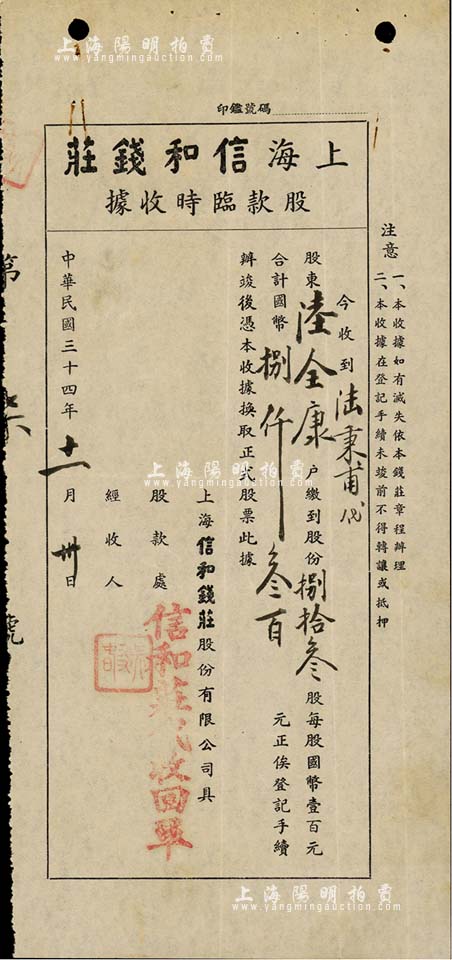 上海陽明拍賣
www.yangmingauction.com
印鑑號碼
上海信和錢莊
股款臨時收據
注意
一、本收據如有滅失依本錢莊章程辦理
二、本收據在登記手續未竣前不得轉讓或抵押
今收到陸秉甫代
股東陸全康戶繳到股份捌拾叁股每股國幣壹百元
合計國幣捌仟叁百元正俟登記手續
辦竣後憑本收據換取正式股票此據
上海信和錢莊股份有限公司具
股款處
經收人
信和莊代收回單
中華民國三十四年十一月卅日
第
號
上海陽明拍賣
www.yangmingauction.com
上海陽明拍賣
www.yangmingauction.com